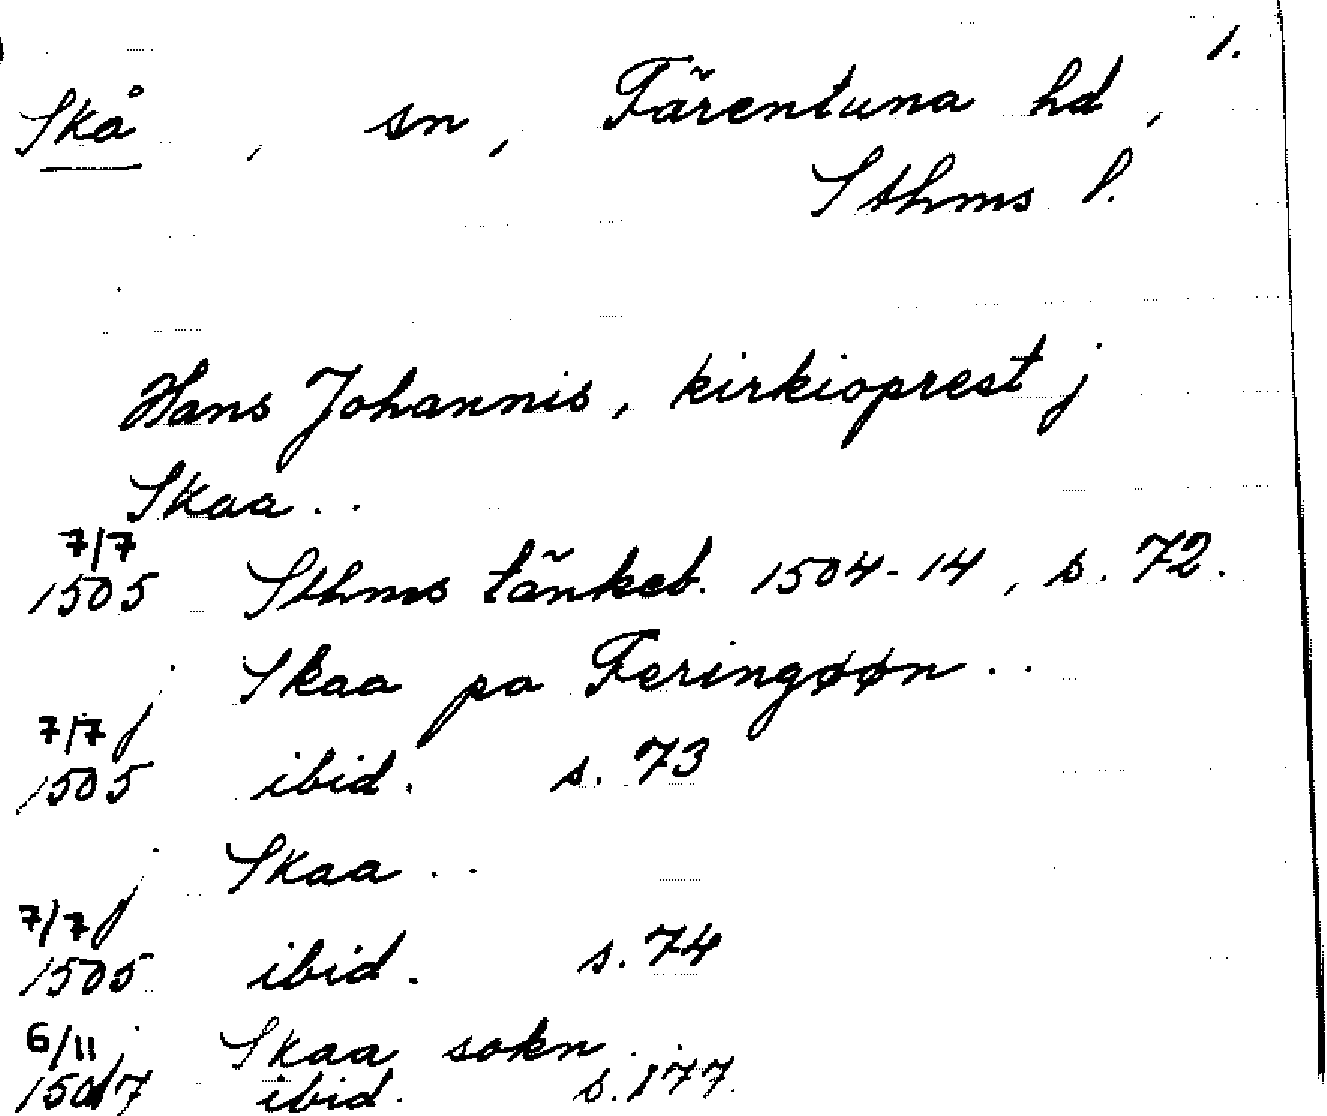 1.
Skå, sn, Färentuna hd,
Sthms l.
Hans Johannis, kirkioprest j
Skaa..
7/7
1505 Sthms tänkeb. 1504-14, s. 72.
j Skaa pa Feringøøn..
7/7
1505 ibid. s. 73
j Skaa..
7/7
1505 ibid. s. 74
6/11 j Skaa sokn..
1507 ibid. s. 177.